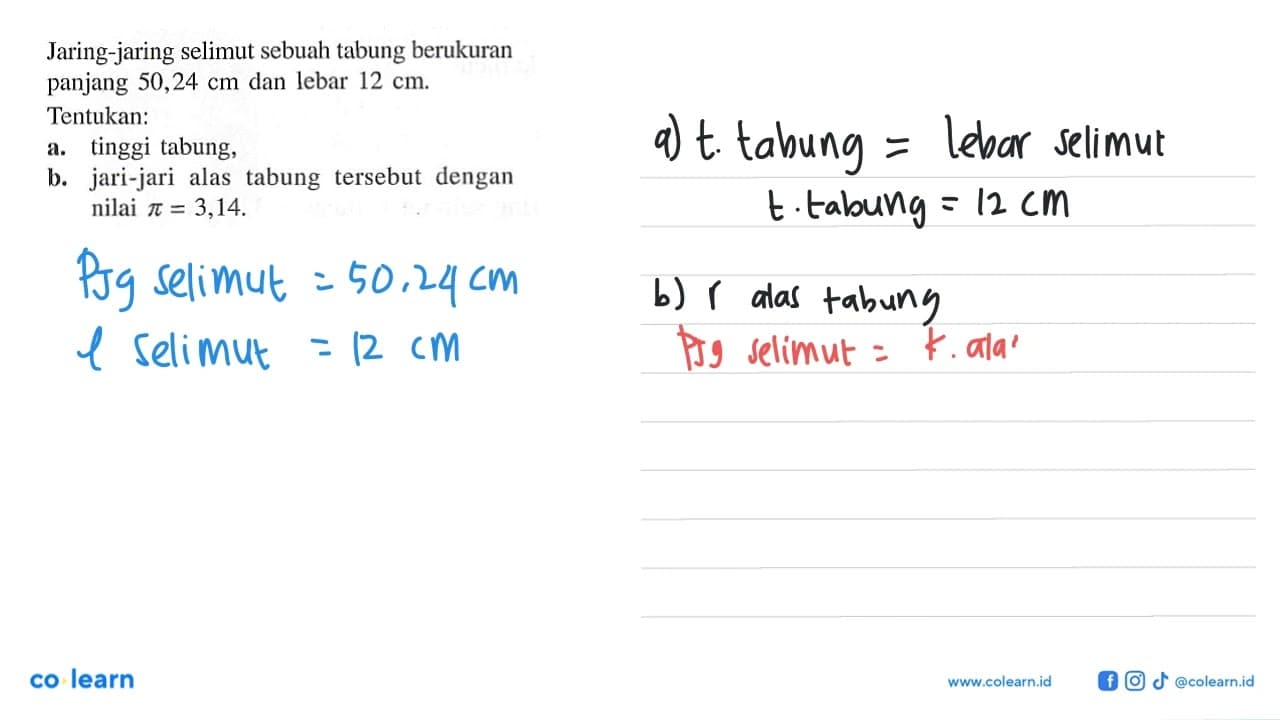 Jaring-jaring selimut sebuah tabung berukuran
panjang 50,24 cm dan lebar 12 cm.
Tentukan:
a. tinggi tabung,
b. jari-jari alas tabung tersebut dengan
nilai π = 3,14.
Pjg selimut = 50,24 cm
l selimut = 12 cm
a) t. tabung = lebar selimut
t. tabung = 12 cm
b) r alas tabung
Pjg selimut = k. ala
co learn
www.colearn.id
@colearn.id